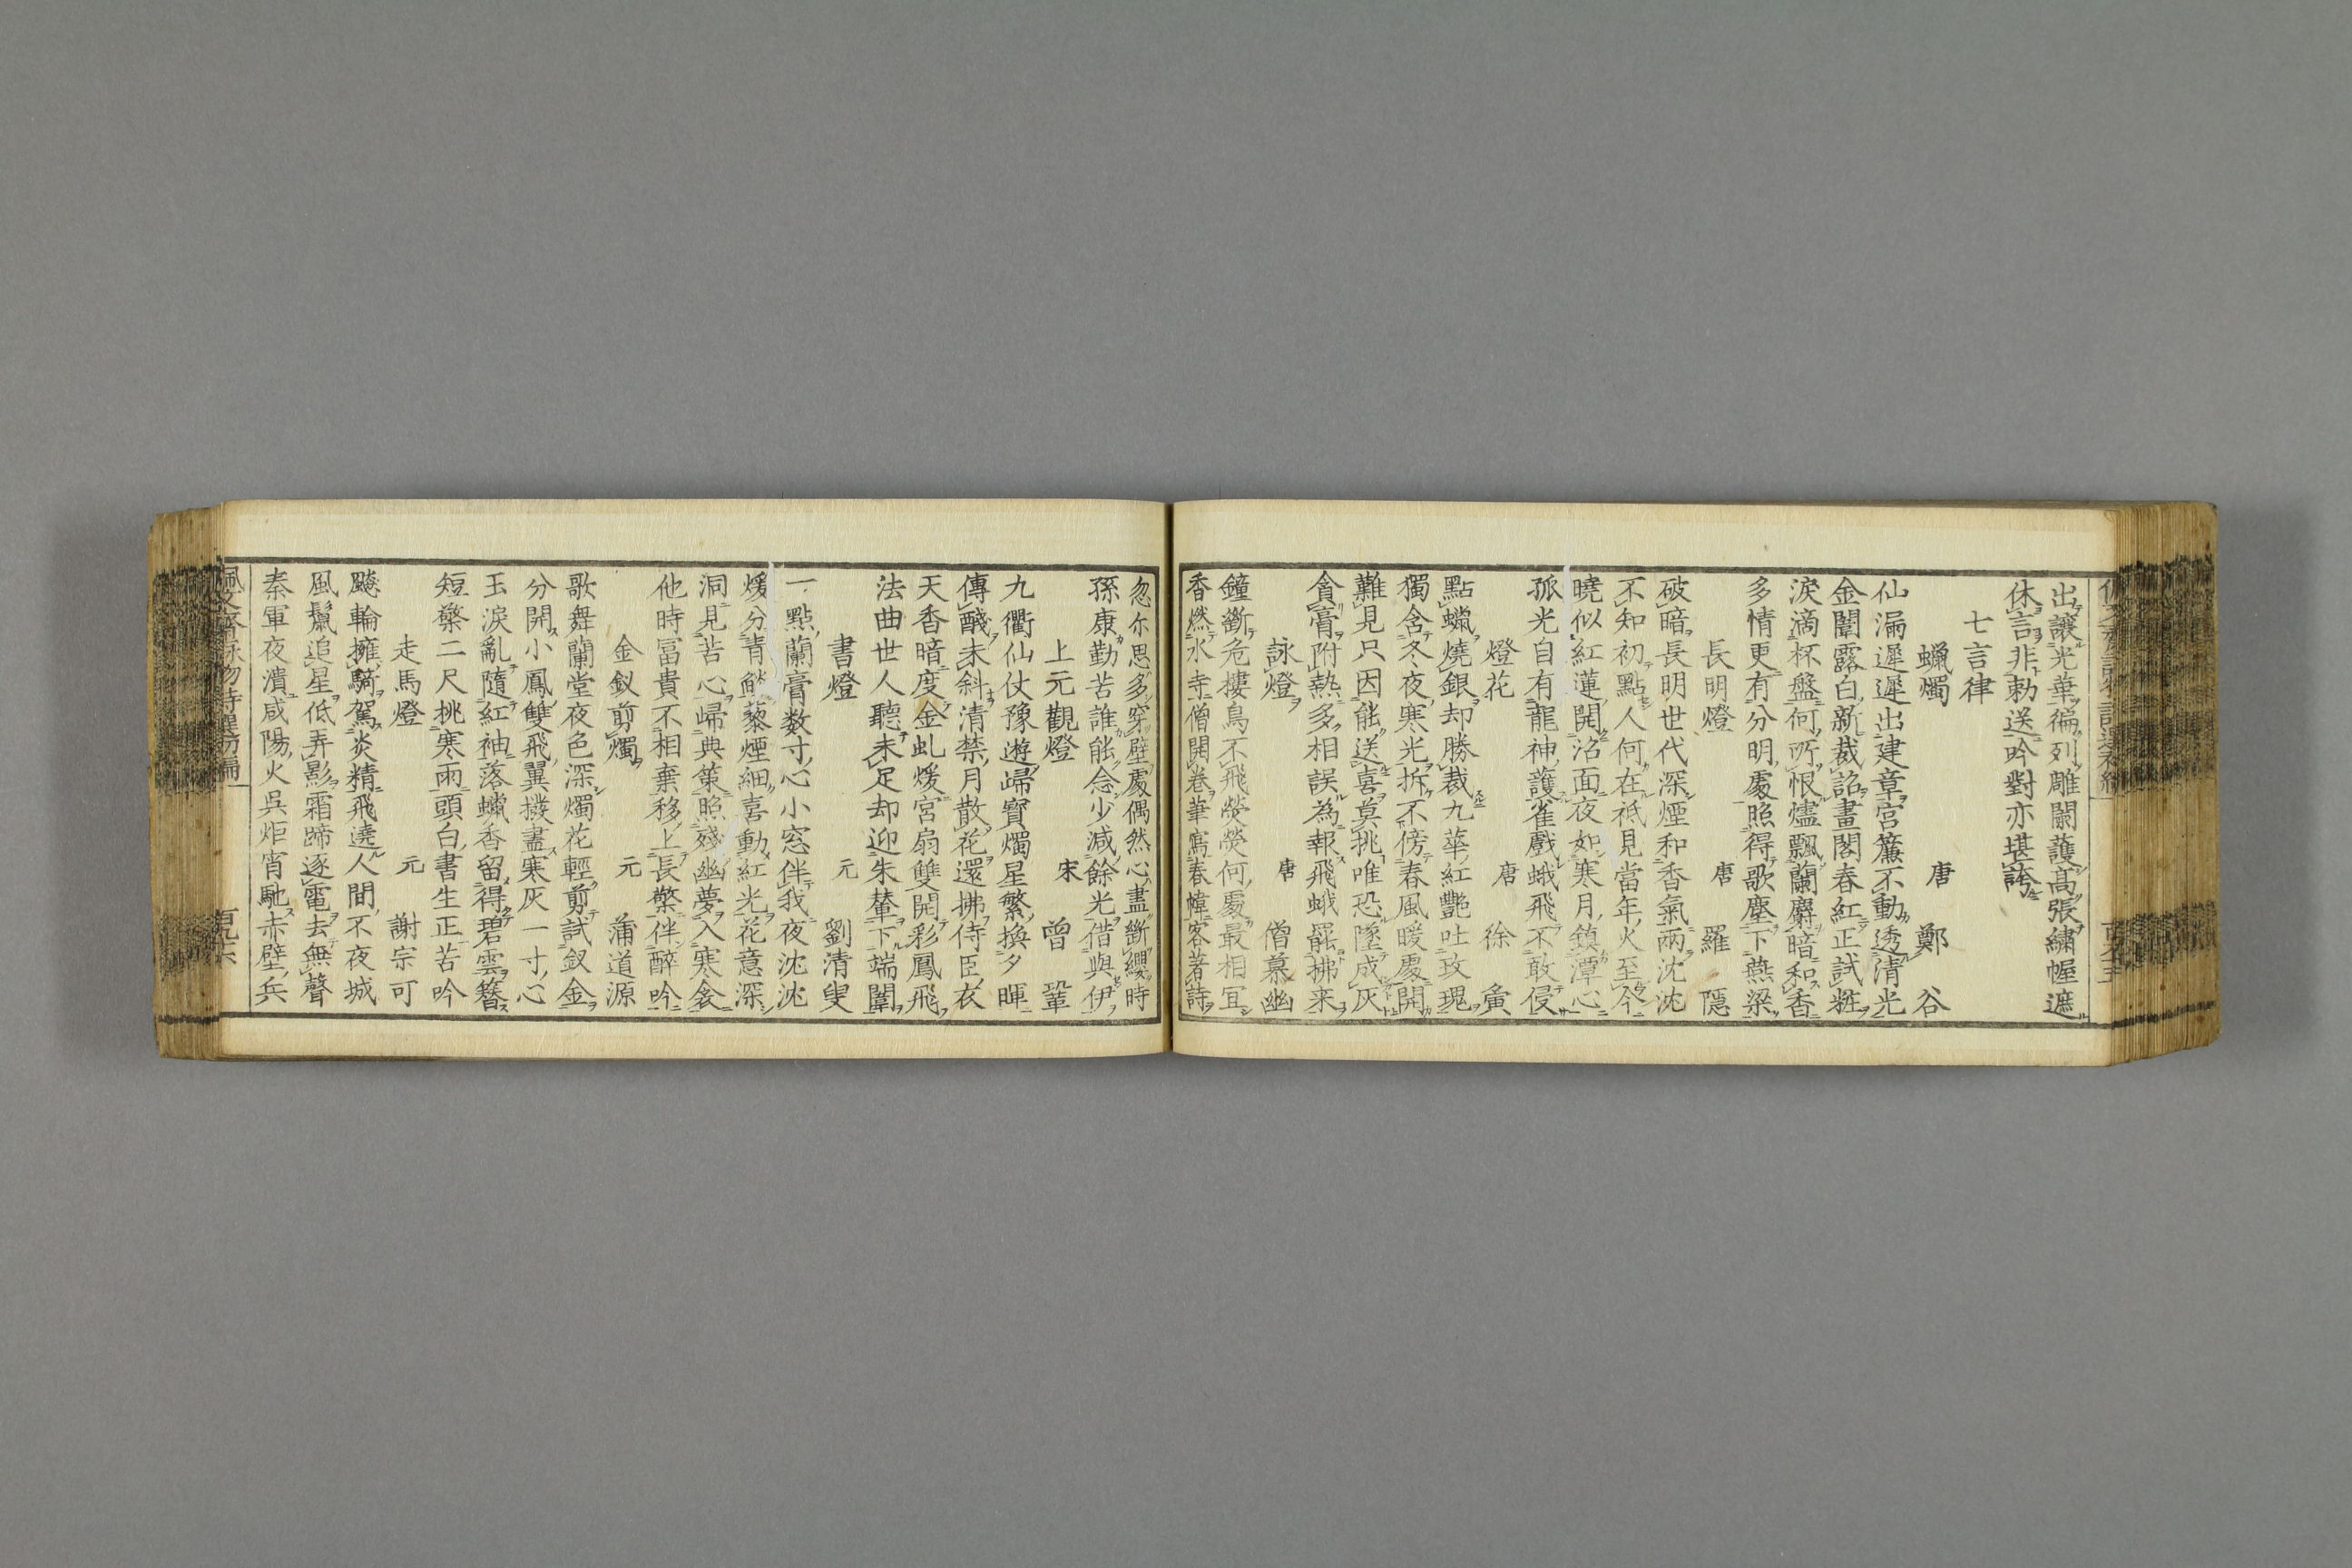 出讓光華徧列雕闌護高張繡幄遮
休言非勅送吟對亦堪誇
七言律
蠟燭 唐 鄭谷
仙漏遲遲出建章宮簾不動透清光
金闈露白新裁詔畫閣春紅正試粧
淚滴杯盤何所恨燼飄蘭麝暗和香
多情更有分明處照得歌塵下燕梁
長明燈 唐 羅隱
破暗長明世代深煙和香氣兩沈沈
不知初點人何在祗見當年火至今
曉似紅蓮開沼面夜如寒月鎮潭心
孤光自有龍神護雀戲蛾飛不敢侵
燈花 唐 徐夤
點蠟燒銀却勝裁九華紅艷吐玫瑰
獨含冬夜寒光拆不傍春風暖處開
難見只因能送喜莫挑唯恐墮成灰
貪膏附熱多相誤為報飛蛾罷拂来
詠燈 唐 僧慕幽
鐘斷危樓鳥不飛熒熒何處最相宜
香燃水寺僧開卷筆寫春幃客著詩
忽尓思多穿壁處偶然心盡斷纓時
孫康勤苦誰能念少減餘光借與伊
上元觀燈 宋 曾鞏
九衢仙仗豫遊歸寶燭星繁換夕暉
傳醆未斜清禁月散花還拂侍臣衣
天香暗度金虬煖宮扇雙開彩鳳飛
法曲世人聽未足却迎朱輦下端闈
書燈 元 劉清叟
一點蘭膏数寸心小窓伴我夜沈沈
煖分青 藜煙細喜動紅光花意深
洞見苦心歸典策照殘幽夢入寒衾
他時冨貴不相棄移上長檠伴醉吟
金釵剪燭 元 蒲道源
歌舞蘭堂夜色深燭花輕剪試釵金
分開小鳳雙飛翼撥盡寒灰一寸心
玉淚亂隨紅袖落蠟香留得碧雲簪
短檠二尺挑寒雨頭白書生正苦吟
走馬燈 元 謝宗可
飈輪擁騎駕炎精飛遶人間不夜城
風鬣追星低弄影霜蹄逐電去無聲
秦軍夜潰咸陽火呉炬宵馳赤壁兵